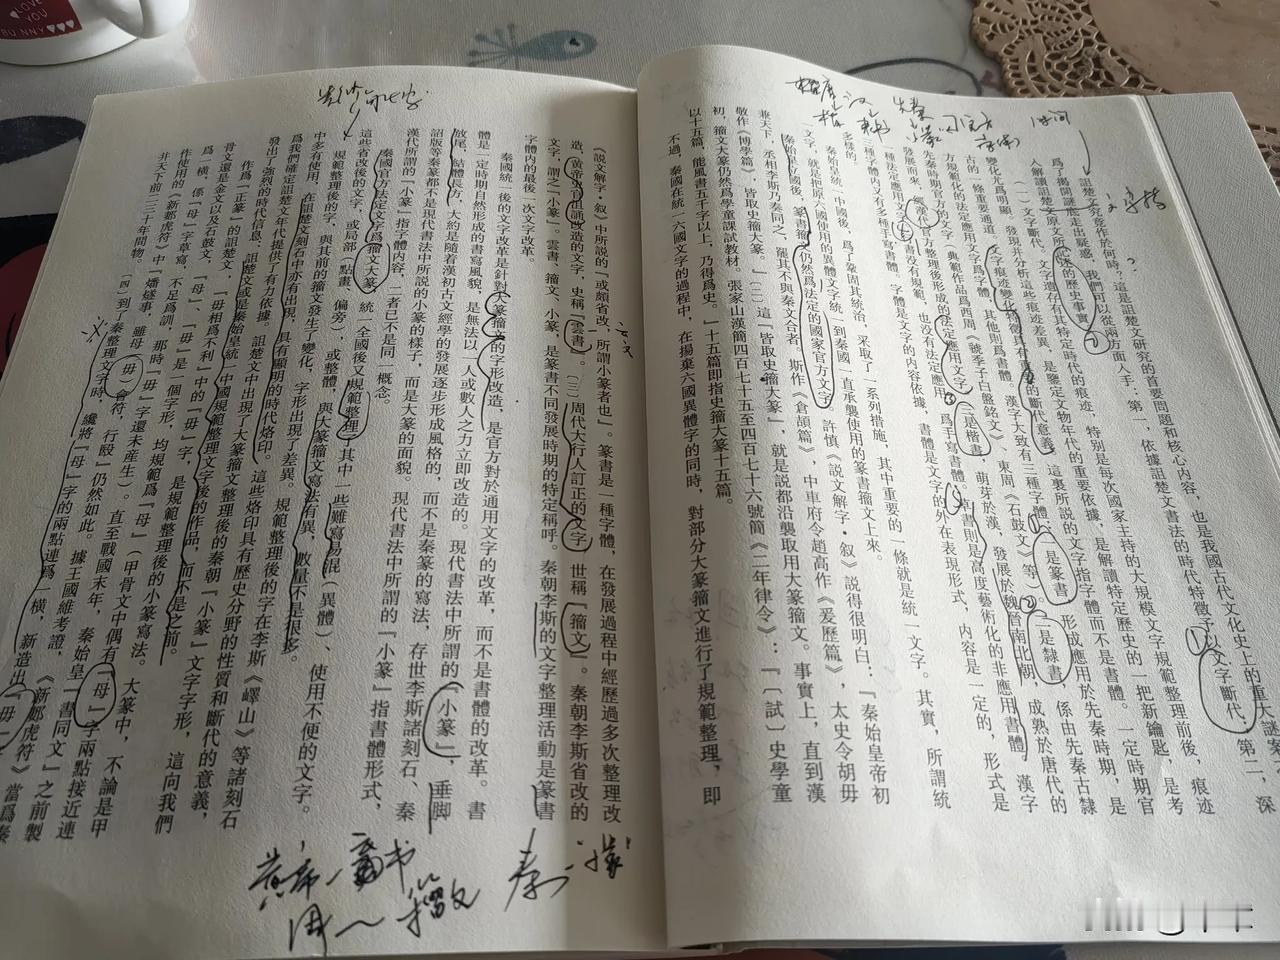 詛楚文究竟作於何時，這是詛楚文研究的首要問題和核心內容，也是我國古代文化史上的重大謎案
爲了揭開謎底走出疑惑，我們可以從兩方面入手：第一，依據詛楚文書法的時代特徵予以文字斷代，第二，深
入解讀詛楚文原文所記述的歷史事實。
（一）文字斷代。文字遺存有其特定時代的痕迹，特別是每次國家主持的大規模文字規範整理前後，痕迹
變化尤爲明顯。發現并分析這些痕迹差异，是鑒定文物年代的重要依據，是解讀特定歷史的一把新鑰匙，是考
古的一條重要通道。文字痕迹變化特徵具有重要的斷代意義。這裏所説的文字指字體而不是書體。一定時期官
方規範化的法定應用文字爲字體，其他則爲書體。漢字大致有三種字體：一是篆書，形成應用於先秦時期，是
先秦時期官方的文字，典範作品爲西周《虢季子白盤銘文》、東周《石鼓文》等。二是隸書，係由先秦古隸
發展而來，經漢代官方整理後形成的法定應用文字。三是楷書，萌芽於漢，發展於魏晋南北朝，成熟於唐代的
一種法定應用文字。書没有規範，也没有法定應用，爲手寫書體。草書則是高度藝術化的非應用書體。漢字
一種字體内又有多種手寫書體，字體是文字的内容依據，書體是文字的外在表現形式，内容是一定的，形式是
多樣的。
秦始皇統一中國後，爲了鞏固其統治，采取了一系列措施，其中重要的一條就是統一文字。其實，所謂統一
文字，就是把原六國使用的異體文字統一到秦國一直承襲使用的篆書籀文上來。
秦始皇登位國後，篆書仍然爲法定的國家官方文字。許慎《説文解字·叙》説得很明白：『秦始皇帝初
兼天下，丞相李斯乃奏同之，罷其不與秦文合者，斯作《倉頡篇》，中車府令趙高作《爰歷篇》，太史令胡毋
敬作《博學篇》，皆取史籀大篆。』（二）這『皆取史籀大篆』，就是説都沿襲取用大篆籀文。事實上，直到漢
初，籀文大篆仍然爲學童課試教材。張家山漢簡四百七十五至四百七十六號簡《二年律令》：『〔試〕史學童
以十五篇，能風書五千字以上，乃得爲史。』十五篇即指史籀大篆十五篇。
不過，秦國在統一六國文字的過程中，在揚棄六國異體字的同時，對部分大篆籀文進行了規範整理，即
《説文解字·叙》中所説的『或頗省改，所謂小篆者也』。篆書是一種字體，在發展過程中經歷過多次整理改
造，黄帝史官倉頡改造的文字，史稱『雲書』。（三）周代大行人訂正的文字，世稱『籀文』。秦朝李斯省改的
文字，謂之『小篆』。雲書、籀文、小篆，是篆書不同發展時期的特定稱呼。秦朝李斯的文字整理活動是篆書
字體内的最後一次文字改革。
秦國統一後的文字改革是針對大篆籀文的字形改造，是官方對於通用文字的改革，而不是書體的改革。書
體是一定時期自然形成的書寫風貌，是無法以一人或數人之力立即改造的。現代書法中所謂的『小篆』，垂脚
放尾，結體長方，大約是隨着漢初古文經學的發展逐步形成風格的，而不是秦篆的寫法，存世李斯諸刻石、秦
詔版等秦篆都不是現代書法中所説的小篆的樣子，而是大篆的面貌。現代書法中所謂的『小篆』指書體形式，
漢代所謂的『小篆』指字體内容，二者已不是同一概念。
秦國官方法定文字爲籀文大篆，統一全國後又規範整理。其中一些難寫易混（異體）、使用不便的文字。
這些省改後的文字，或局部（點畫、偏旁），或整體，與大篆籀文寫法有異，數量不是很多。
規範整理後的字，與其前的籀文發生了變化，字形出現了差異。規範整理後的字在李斯《嶧山》等諸刻石
中多有使用，在詛楚文刻石中亦有出現，具有顯明的時代烙印。這些烙印具有歷史分野的性質和斷代的意義，
爲我們確定詛楚文年代提供了有力依據。詛楚文中出現了大篆籀文整理後的秦朝『小篆』文字字形，這向我們
發出了強烈的時代信息，詛楚文或是秦始皇統一中國規範整理文字後的作品，而不是之前。
作爲『正篆』的詛楚文，『毋相爲不利』中的『毋』字，是規範整理後的小篆寫法。大篆中，不論是甲
骨文還是金文以及石鼓文，『母』、『毋』是一個字形，均規範爲『母』（甲骨文中偶有『母』字兩點接近連
爲一横，係『母』字草寫，不足爲訓，那時『毋』字還未産生）。直至戰國末年，秦始皇『書同文』之前製
作使用的《新郪虎符》中『燔燧事，雖母（毋）會符，行殹』仍然如此。據王國維考證，《新郪虎符》當爲秦
并天下前二三十年間物。（四）到了秦整理文字時，纔將『母』字的兩點連爲一横，新造出『毋』
黄帝一雲书
周～籀文
秦
LOVE
YOU
BUNNY